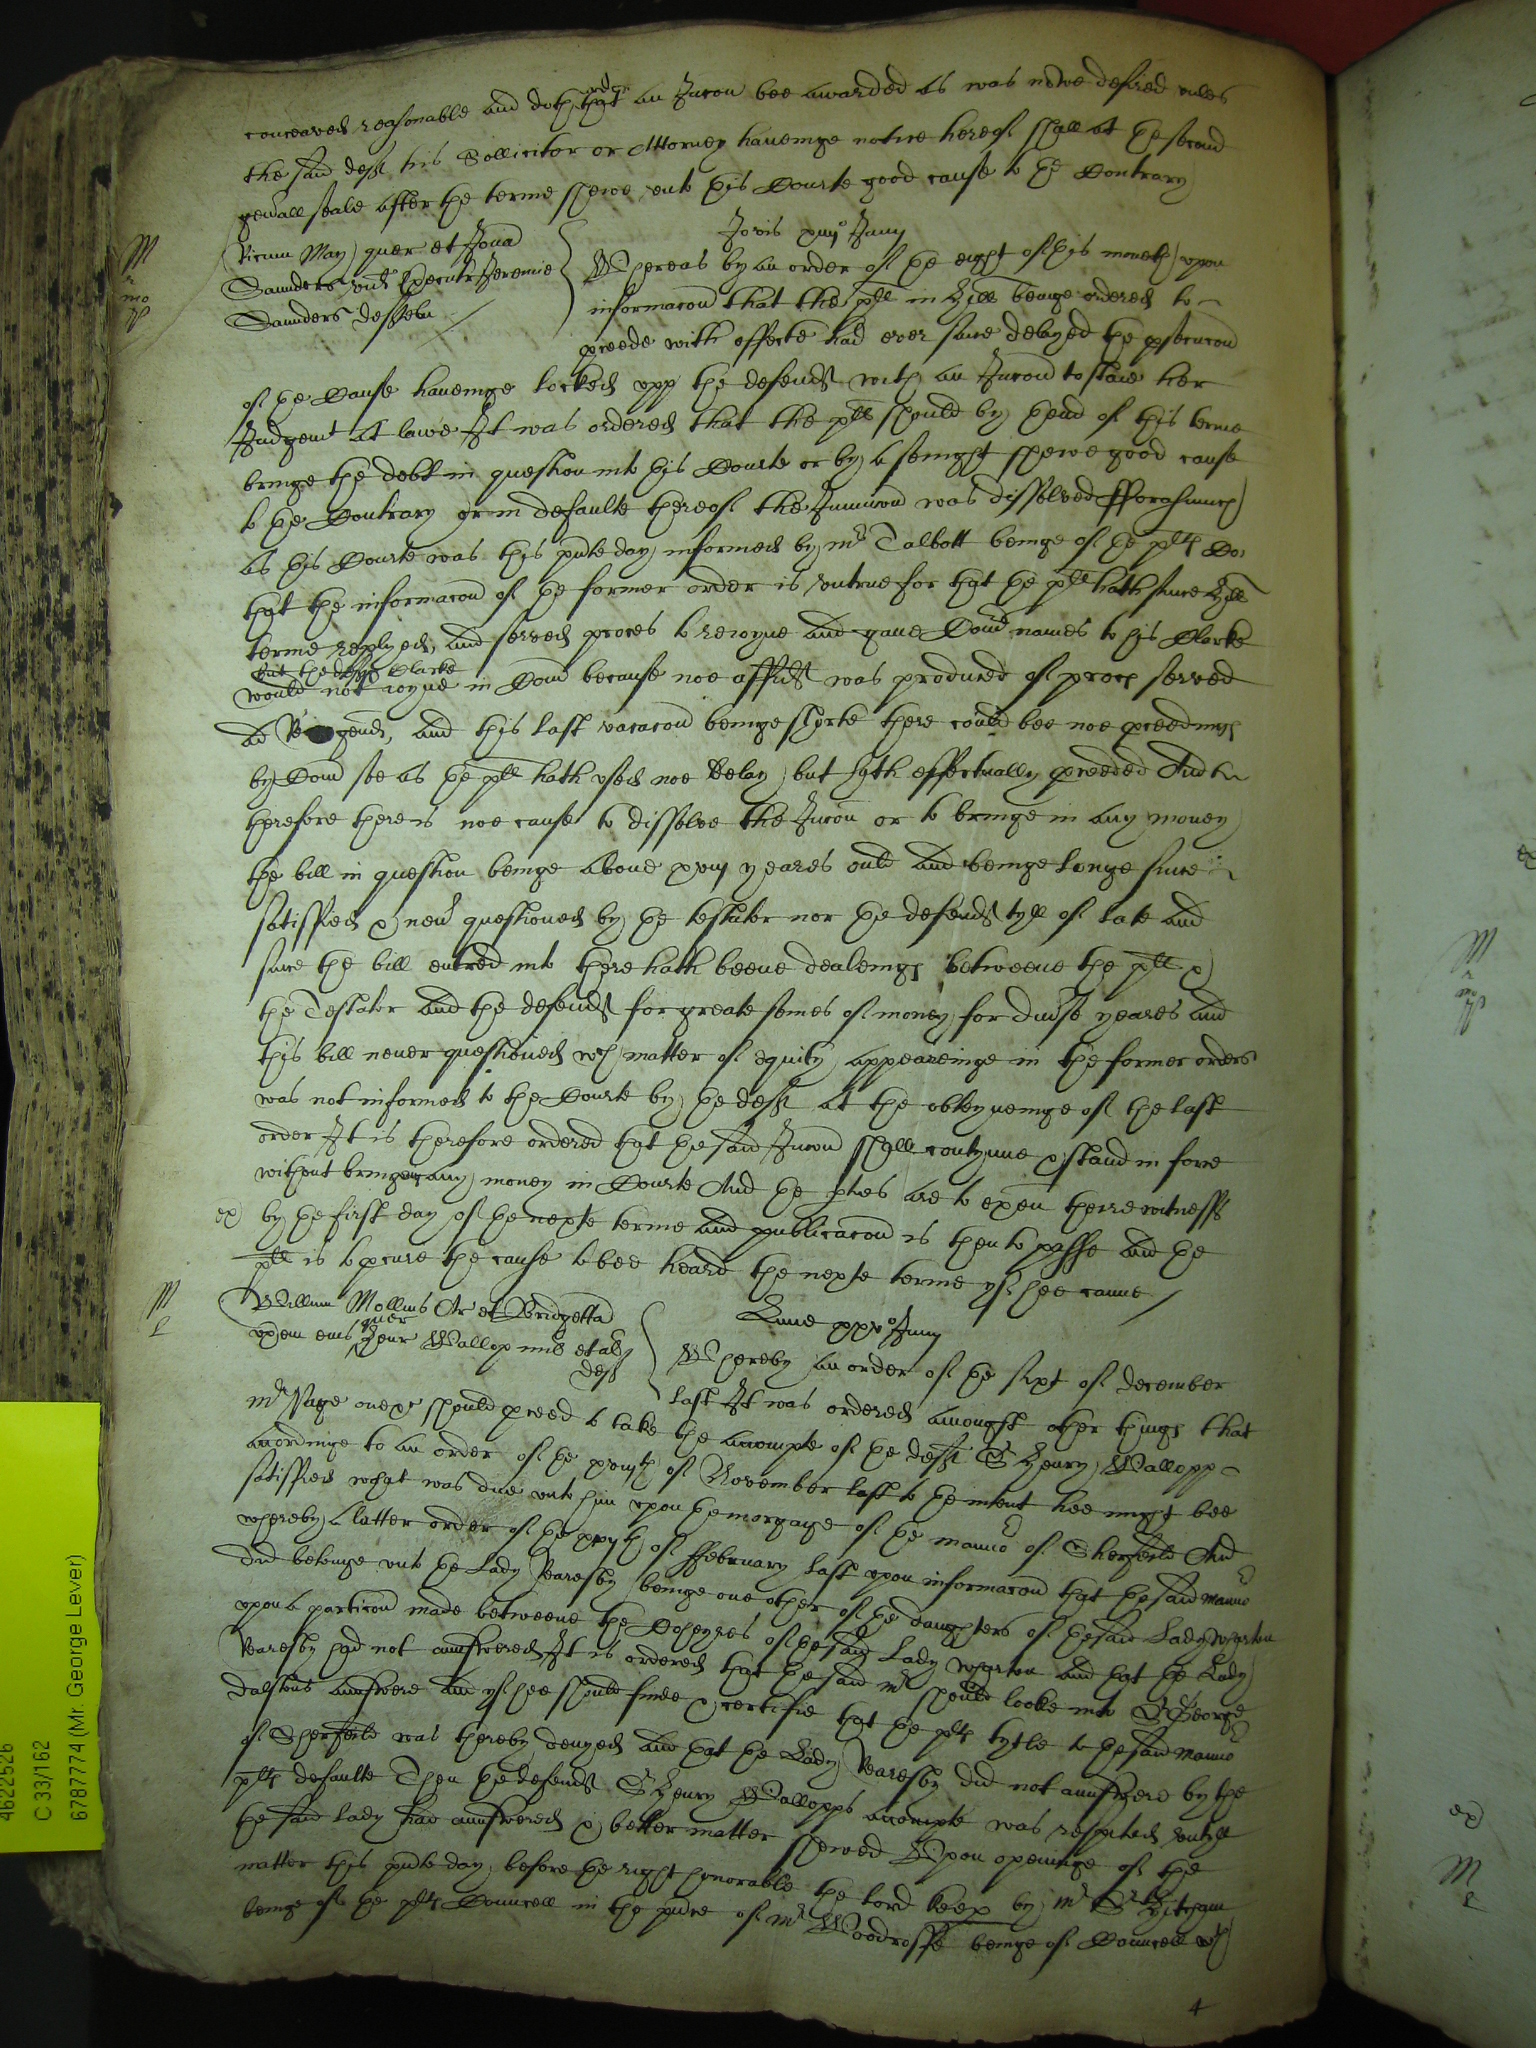 conceaved reasonable and doth order that an Iniccon bee awarded as was nowe desired vnles
the said deft his Sollicitor or Attorney haueinge notice hereof shall at the second
gen'all seale after the terme shewe vnto this Courte good cause to the Contrary
Jovis Junij
May quer et Jona
Saunders vid Executr Jeremie
Saunders defften
Whereas by an order of the eight of this moneth vpon
informacon that the plt in Hill beinge ordered to
pceede with effecte had ever since delayed the psecucon
of the Cause haueinge locked vpp the defendt with an Iniccon to staie her
Judgemt at lawe It was ordered that the plt should by thend of this terme
bringe the debt in question into this Courte or by a senight shewe good cause
to the Contrary or in defaulte thereof the Iniuncon was dissolved fforasmuch
as this Courte was this pnte day informed by mr Talbott beinge of the plts Co
that the informacon of the former order is vntrue for that the plt hath since Hill
terme replyed, and served proces to reioyne and gaue Comrs names to his Clarke
But the defts Clarke
would not ioyne in Com because noe affidt was produced of proces served
ad and this last vacacon beinge shorte there could bee noe pceedings
by Com soe as the plt hath vsed noe delay but hath effectually pceeded And
therefore there is noe cause to dissolve the Iniccon or to bringe in any money
the bill in question beinge aboue xviij yeares ould and beinge longe since
satisfied & neur questioned by the testator nor the defendt tyll of late and
since the bill entred into there hath beene dealeings betweene the plt &
the Testator and the defendt for greate somes of money for diuse yeares and
this bill never questioned wch matter of equity appeareinge in the former orders
was not informed to the Courte by the deft at the obteyneinge of the last
order It is therefore ordered that the said Iniccon shall contynue & stand in force
without bringeing any money in Courte And the pties are to exen theire witnesss
ex by the first day of the nexte terme and publicacon is then to passe and the
plt is to pcure the cause to bee heard the nexte terme yf hee canne
Willum Mollins Ar et Bridgetta
vxem eius quer Henr Wallop mil et alij
deft
Lune xxv Junij
Whereby an order of the sixt of december
last It was ordered amongst other things that
mr Page one &c should pceed to take the accompte of the deft Sr Henry Wallopp
accordinge to an order of the of November last to the intent hee might bee
satisfied what was due vnto him vpon the morgage of the mannor of Sherfeild And
whereby a latter order of the of ffebruary last vpon informacon that the said mannor
did belonge vnto the Lady Reresby beinge one other of the daughters of the said Lady
vpon a particon made betweene the Coheyres of the said Lady and that the Lady
Reresby had not answered It is ordered that the said mr should looke into Sr George
Dalstons answere and yf hee should finde & certifie that the plts tytle to the said mannor
of Sherfeild was thereby denyed and that the Lady Reresby did not answere by the
plts defaulte Then the defendt Sr Henry Wallopps accompte was respited vntyll
the said lady had answered & better matter shewed Vpon openinge of the
matter this pnte day before the right honorable the lord keep by mr Sr
beinge of the plts Councell in the pnce of mr Woodroffe beinge of Councell wth
4
4622526
C 33/162
6787774 (Mr. George Lever)